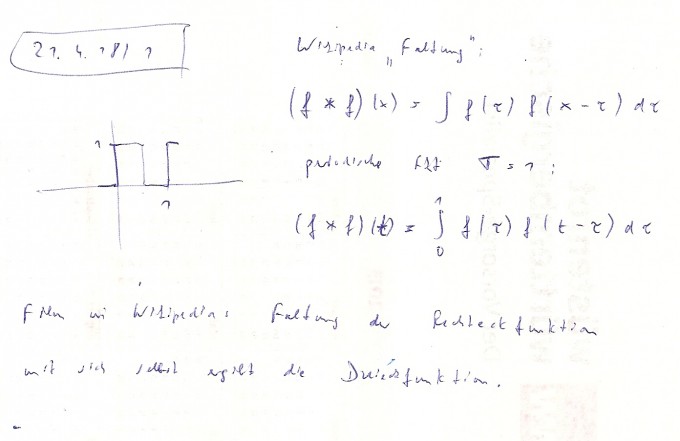 21. 4. 18/ 1
Wikipedia "Faltung":
(f * f)(x) = ∫ f(τ) f(x - τ) dτ
1
1
periodische Fkt T = 1 :
(f * f)(t) = ∫₀¹ f(τ) f(t - τ) dτ
Film in Wikipedia: Faltung der Rechteckfunktion
mit sich selbst ergibt die Dreiecksfunktion.